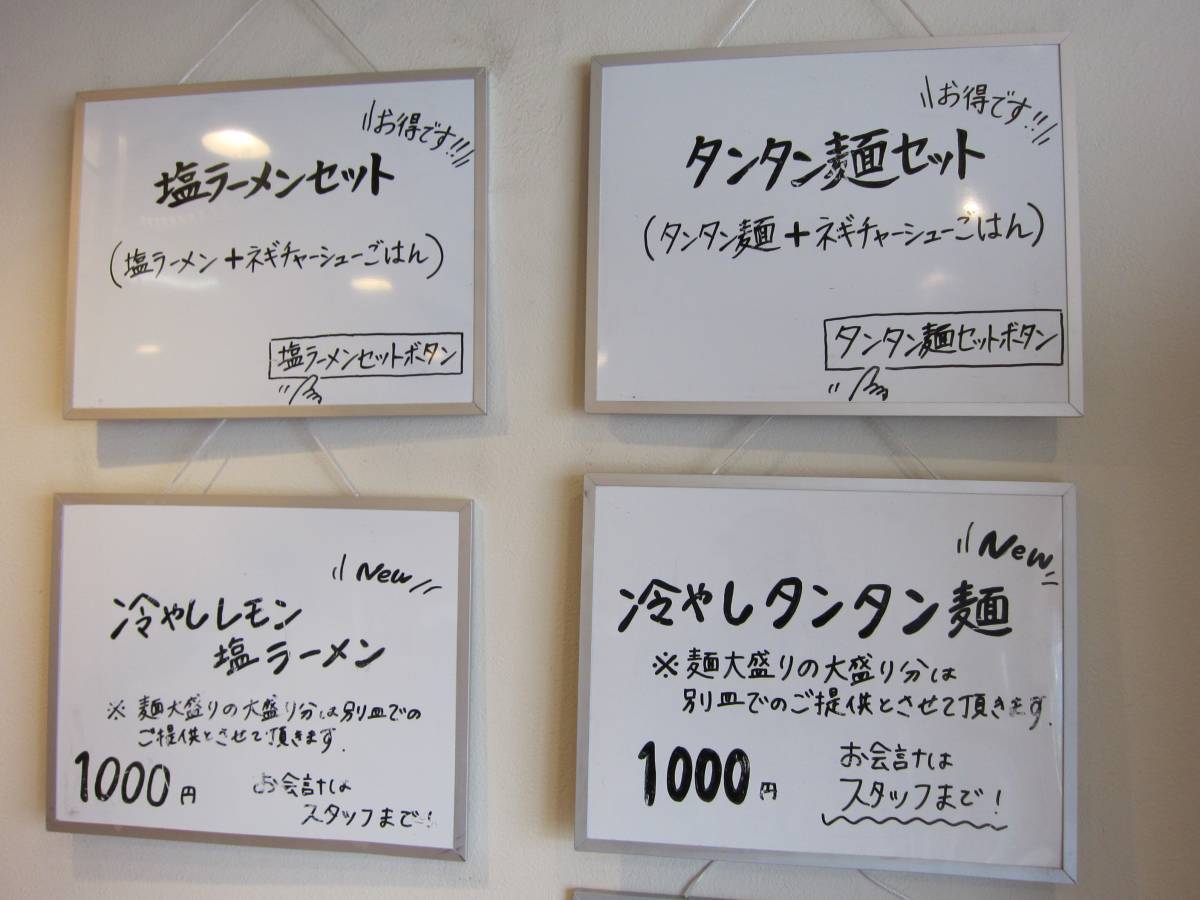 お得です!!!
塩ラーメンセット
(塩ラーメン+ネギチャーシューごはん)
塩ラーメンセットボタン
お得です!!!
タンタン麺セット
(タンタン麺+ネギチャーシューごはん)
タンタン麺セットボタン
New
冷やしレモン
塩ラーメン
※ 麺大盛りの大盛り分は別皿での
ご提供とさせて頂きます.
1000円
お会計は
スタッフまで!
New
冷やしタンタン麺
※ 麺大盛りの大盛り分は
別皿でのご提供とさせて頂きます.
1000円
お会計は
スタッフまで!